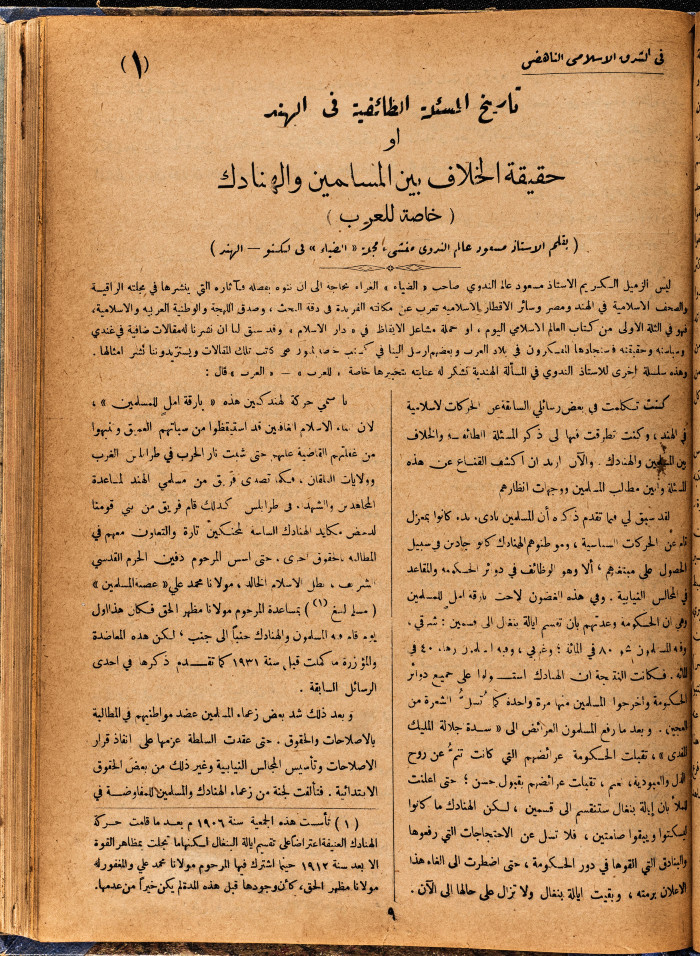 في الشرق الاسلامي الناهض
(١)
تاريخ المسئلة الطائفية في الهند
او
حقيقة الخلاف بين المسلمين والهنادك
( خاصة للعرب )
( بقلم الاستاذ مسعود عالم الندوى منشىء مجلة « الضياء » في لكنو — الهند )
ليس الزميل الكريم الاستاذ مسعود عالم الندوي صاحب « الضياء » الغراء بحاجة الى ان ننوه بفضله فآثاره التي ينشرها في مجلته الراقية
والصحف الاسلامية في الهند ومصر وسائر الاقطار الاسلامية تعرب عن مكانته الفريدة في دقة البحث ، وصدق اللهجة والوطنية العربية والاسلامية،
فهو في الثلة الاولى من كتاب العالم الاسلامي اليوم ، او حملة مشاعل الايقاظ في « دار الاسلام » وقد سبق لنا ان نشرنا له مقالات ضافية في غندي
وسياسته وحقيقته فاستجادها المفكرون في بلاد العرب وبعضهم ارسل الينا في كتب خاصة تلك المقالات ويستزيدوننا نشر امثالها .
وهذه سلسلة اخرى للاستاذ الندوي في المسألة الهندية تشكر له عنايته بتحبيرها خاصة « للعرب » — « العرب » قال :
كنت تكلمت في بعض رسائلي السابقة عن الحركات الاسلامية
في الهند ، وكنت تطرقت فيها الى ذكر المسئلة الطائفية والخلاف
بين المسلمين والهنادك . والآن اريد ان اكشف القناع عن هذه
المسئلة وأبين مطالب المسلمين ووجهات انظارهم
لقد سبق لي فيما تقدم ذكره أن المسلمين بادىء بدء كانوا بمعزل
تام عن الحركات السياسية ، ومواطنوهم الهنادك كانوا جادين في سبيل
الحصول على مبتغاهم ، ألا وهو الوظائف في دوائر الحكومة والمقاعد
في المجالس النيابية . وفي هذه الغضون لاحت بارقة امل للمسلمين
وهي ان الحكومة وعدتهم بان تقسم ايالة بنغال الى قسمين : شرقي ،
وفيه المسلمون ٨٠ في المائة ؛ وغربي ، وفيه ٤٠ في
المائة . فكانت النتيجة ان الهنادك استولوا على جميع دوائر
الحكومة واخرجوا المسلمين منها مرة واحدة كما تُسلُّ الشعرة من
العجين . وبعد ما رفع المسلمون العرائض الى « سدة جلالة المليك
المفدى » ، تقبلت الحكومة عرائضهم التي كانت تنمُّ عن روح
الذل والعبودية، نعم ، تقبلت عرائضهم بقبول حسن ؛ حتى اعلنت
الملأ بأن إيالة بنغال ستنقسم الى قسمين ، لكن الهنادك ما كانوا
ليسكتوا ويبقوا صامتين ، فلا تسل عن الاحتجاجات التي رفعوها
والبنادق التي القوها في دور الحكومة ، حتى اضطرت الى الغاء هذا
الاعلان برمته ، وبقيت ايالة بنغال ولا تزال على حالها الى الآن .
ما سمي حركة الهندكيين هذه « بارقة امل للمسلمين » ،
لان ابناء الاسلام الغافين قد استيقظوا من سباتهم العميق وتنبهوا
من غفلتهم القاضية عليهم حتى شبت نار الحرب في طرابلس الغرب
وولايات البلقان ، فكما تصدى فريق من مسلمي الهند لمساعدة
المجاهدين والشهداء في طرابلس كذلك قام فريق من بني قومنا
لدحض مكايد الهنادك الساسة المحنكين تارة والتعاون معهم في
المطالبة بالحقوق اخرى . حتى اسس المرحوم دفين الحرم القدسي
الشريف ، بطل الاسلام الخالد ، مولانا محمد علي « عصبة المسلمين »
( مسلم ليغ (١) ) بمساعدة المرحوم مولانا مظهر الحق فكان هذا اول
يوم قام فيه المسلمون والهنادك جنباً الى جنب ، لكن هذه المعاضدة
والمؤازرة ما كملت قبل سنة ١٩٣١ كما تقدم ذكرها في احدى
الرسائل السابقة .
و بعد ذلك شد بعض زعماء المسلمين عضد مواطنيهم في المطالبة
بالاصلاحات والحقوق . حتى عقدت السلطة عزمها على انفاذ قرار
الاصلاحات وتأسيس المجالس النيابية وغير ذلك من بعض الحقوق
الابتدائية . فتألفت لجنة من زعماء الهنادك والمسلمين للمفاوضة في
( ١ ) تأسست هذه الجمعية سنة ١٩٠٦ م بعد ما قامت حركة
الهنادك العنيفة اعتراضا على تقسيم ايالة البنغال لكنها ما تجلت بمظاهر القوة
الا بعد سنة ١٩١٢ حينما اشترك فيها المرحوم مولانا محمد علي والمغفور له
مولانا مظهر الحق، كأن وجودها قبل هذه المدة لم يكن خيراً من عدمها.
٩